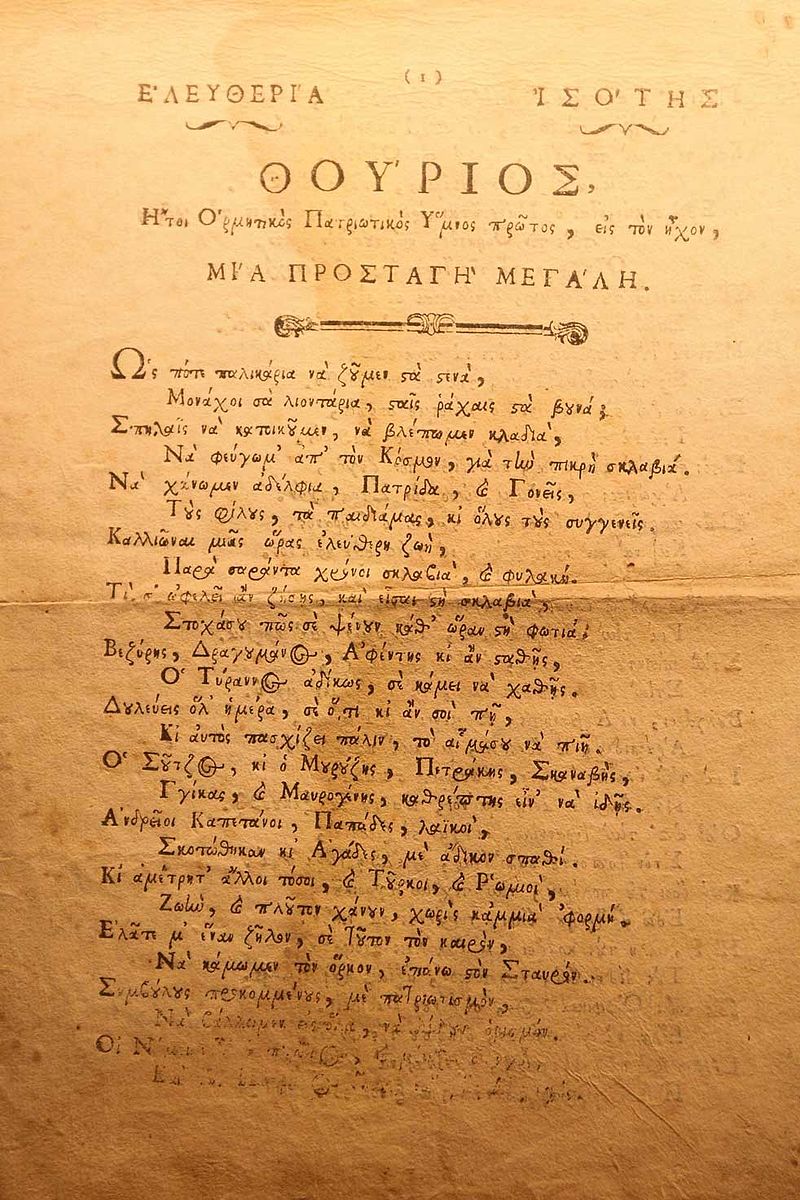 (1)
Ε᾿ΛΕΥΘΕΡΙ´Α ἸΣΟ´ΤΗΣ
ΘΟΥ´ΡΙΟΣ,
Ἤτοι Ὁρμητικὸς Πατριωτικὸς Ὕμνος πρῶτος, εἰς τὸν ἦχον,
ΜΙ´Α ΠΡΟΣΤΑΓΗ` ΜΕΓΑ´ΛΗ.
Ὡς πότε παλικάρια νὰ ζοῦμεν στὰ στενὰ,
Μονάχοι σὰ λιοντάρια, σταῖς ράχαις στὰ βουνά;
Σπηλαῖς νὰ κατοικοῦμεν, νὰ βλέπωμεν κλαδιὰ,
Νὰ φεύγωμ᾿ ἀπ᾿ τὸν Κόσμον, γιὰ τὴν πικρὴ σκλαβιά.
Νὰ χάνωμεν ἀδέλφια, Πατρίδα, & Γονεῖς,
Τοὺς φίλους, τὰ παιδιάμας, κι ὅλους τοὺς συγγενεῖς.
Καλλιῶναι μιᾶς ὥρας ἐλεύθερη ζωὴ,
Παρὰ σαράντα χρόνοι σκλαβιὰ, & φυλακή.
Τὶ σ᾿ ὠφελεῖ ἂν ζήσῃς, καὶ εἶσαι στὴ σκλαβιὰ,
Στοχάσου πῶς σὲ ψένουν καθ᾿ ὥραν στὴ φωτιά.
Βεζύρης, Δραγουμάνος, Ἀφέντης κι ἂν σταθῇς,
Ὁ Τύραννος ἀδίκως, σὲ κάμει νὰ χαθῇς.
Δουλεύεις ὅλ᾿ ἡμέρα, σὲ ὅ,τι κι ἂν σοὶ πῇ,
Κι αὐτὸς πασχίζει πάλιν, τὸ αἷμάσου νὰ πιῇ.
Ὁ Σοῦτζος, κι ὁ Μουρούζης, Πετράκης, Σκαναβῆς,
Γγίκας, & Μαυρογένης, καθρέπτης εἶν᾿ νὰ ἰδῇς.
Ἀνδρεῖοι Καπετάνοι, Παπάδες, λαϊκοὶ,
Σκοτώθηκαν κι Ἀγάδες, μὲ ἄδικον σπαθί.
Κι ἀμέτρητ᾿ ἄλλοι τόσοι, & Τοῦρκοι, & Ῥωμιοὶ,
Ζωὴν, & πλοῦτον χάνουν, χωρὶς καμμιὰ ᾿φορμή.
Ἐλᾶτε μ᾿ ἕναν ζῆλον, σὲ τοῦτον τὸν καιρὸν,
Νὰ κάμωμεν τὸν ὅρκον, ἐπάνω στὸν Σταυρόν.
Συμβούλους προκομμένους, μὲ πατριωτισμὸν,
Νὰ βάλλωμεν εἰς ὅλα, νὰ δίδουν ὁρισμόν.
Οἱ